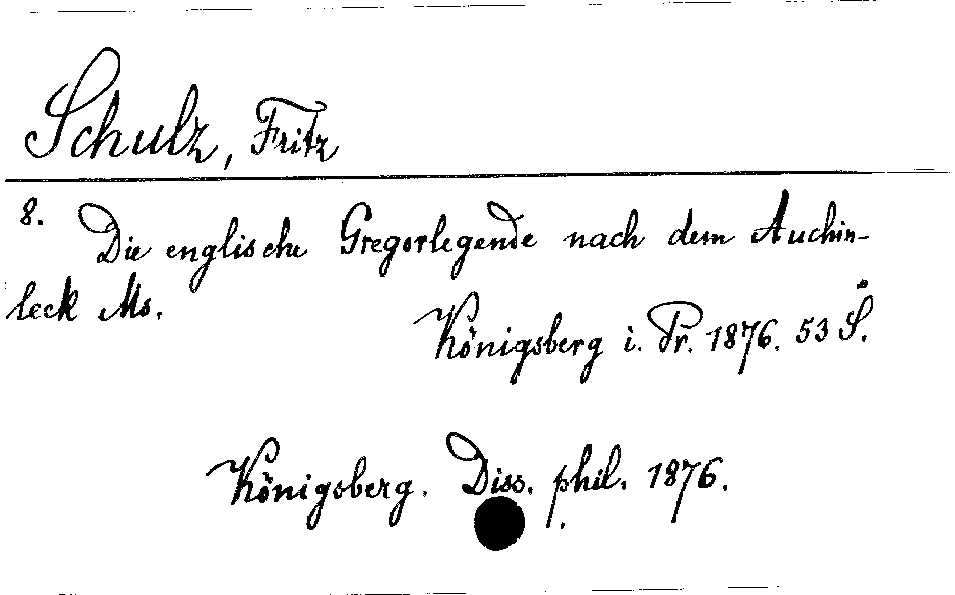 Schulz, Fritz
8. Die englische Gregorlegende nach dem Auchin-
leck Ms.
Königsberg i. Pr. 1876. 53 S.
Königsberg. Diss. phil. 1876.